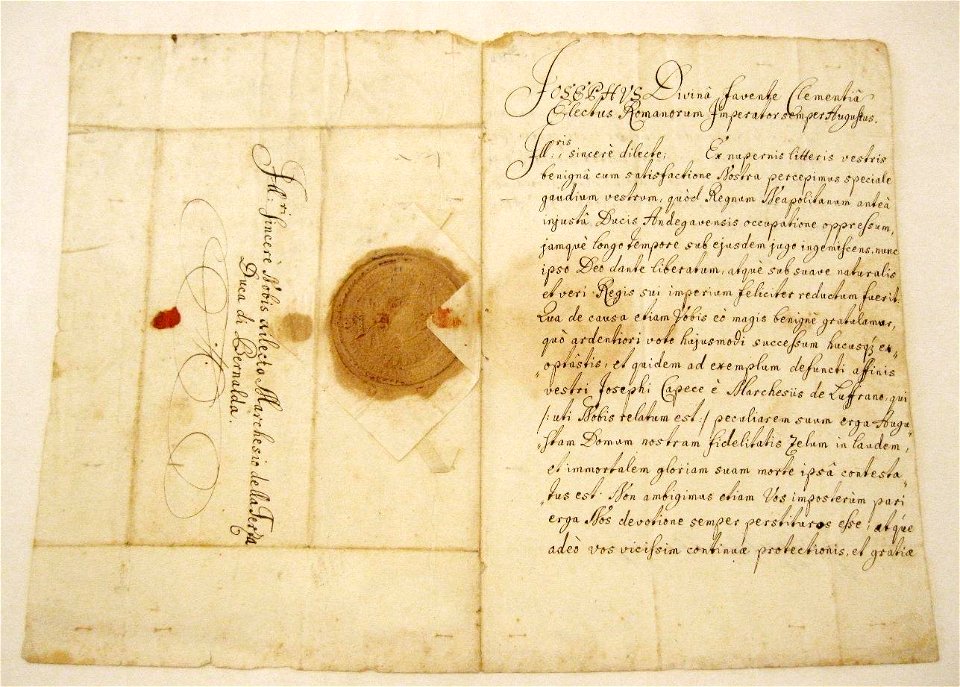 JOSEPHVS Divinâ favente Clementiâ
Electus Romanorum Imperator semper Augustus.
Ill:ris sincerè dilecte; Ex nupernis litteris vestris
benignâ cum satisfactione Nostra percepimus speciale
gaudium vestrum, quòd Regnum Neapolitanum anteà
injustâ Ducis Andegavensis occupatione oppressum,
jamquè longo tempore sub ejusdem jugo ingemiscens, nunc
ipso Deo dante liberatum, atquè sub suave naturalis
et veri Regis sui imperium feliciter reductum fuerit.
Qua de causa etiam Vobis eò magis benignè gratulamur,
quò ardentiori voto hujusmodi successum hucusq; ex-
optâstis, et quidem ad exemplum defuncti affinis
vestri Josephi Capece è Marchesiis de Luffrano, qui
/: uti Nobis relatum est :/ peculiarem suum erga Augu-
stam Domum nostram fidelitatis Zelum in laudem,
et immortalem gloriam suam morte ipsâ contesta-
tus est. Non ambigimus etiam Vos imposterum pari
erga Nos devotione semper perstituros esse, atque
adeò vos vicissim continuæ protectionis, et gratiæ
Ill:ri Sincerè Nobis dilecto Marchesio della Terza
Duca di Bernalda.